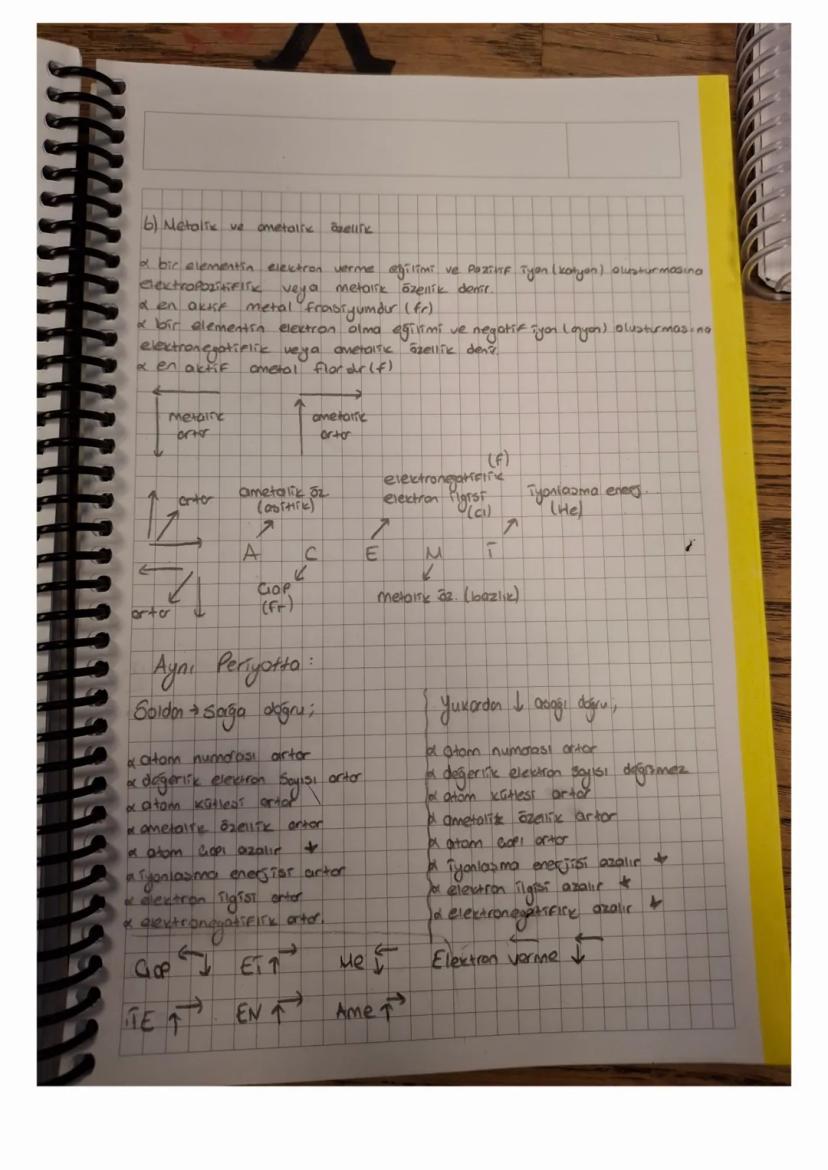 b) Metalik ve ametalik özellik
α bir elementin elektron verme eğilimi ve pozitif iyon (katyon) oluşturmasına
elektropozitiflik veya metalik özellik denir.
α en aktif metal fransiyumdur (fr)
α bir elementin elektron alma eğilimi ve negatif iyon (anyon) oluşturmasına
elektronegatiflik veya ametalik özellik denir.
α en aktif ametal flordr (f)
metalik
artar
ametalik
artar
(f)
elektronegatiflik
elektron ilgisi
(Cl)
iyonlaşma enerj.
(He)
ametalik öz
(asitlik)
artar
A Ç E M İ
Çap
(fr)
metalik öz. (bazlık)
artar
Aynı Periyotta:
Soldan → sağa doğru;
α atom numarası artar
α değerlik elektron sayısı artar
α atom kütlesi artar
α ametalik özellik artar
α atom çapı azalır ★
α iyonlaşma enerjisi artar
α elektron ilgisi artar
α elektronegatiflik artar.
Yukardan ↓ aşağı doğru;
α atom numarası artar
α değerlik elektron sayısı değişmez
α atom kütlesi artar
α ametalik özelik artar
α atom çapı artar
α iyonlaşma enerjisi azalır ★
α elektron ilgisi azalır ★
α elektronegatiflik azalır ★
Çap ←↓ Eİ ↑→ Me ←↓ Elektron verme ←↓
İE ↑→ EN ↑→ Ame ↑→